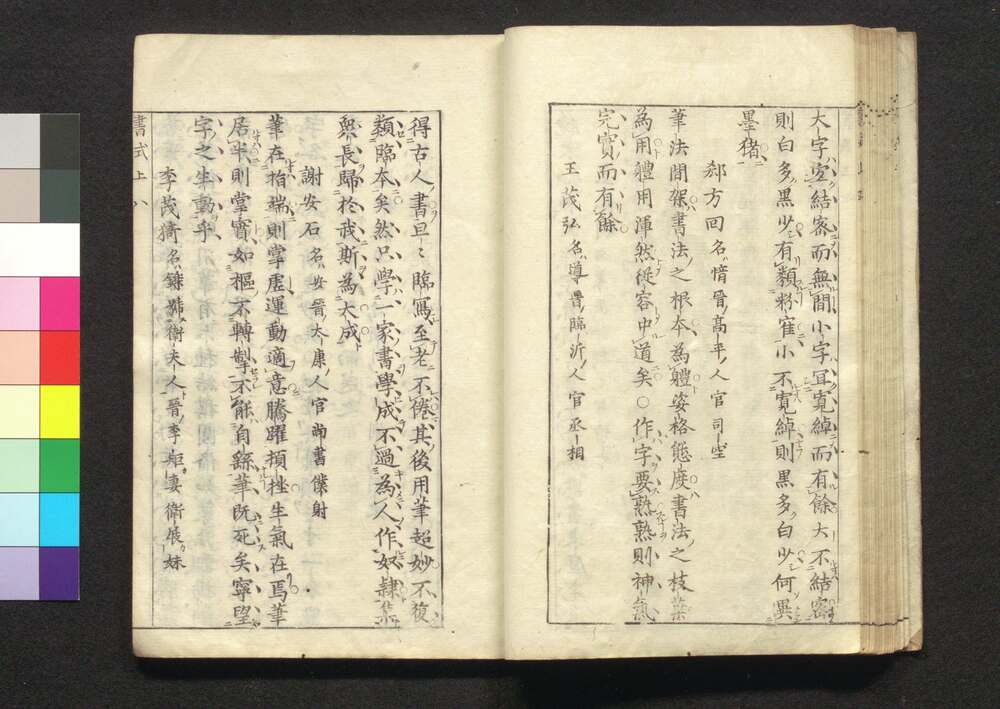 大字宜結密而無間小字宜寛綽而有餘大不結密
則白多黒少有類粉窂小不寛綽則黒多白少何異
墨猪
郄方回名愔晉高平人官司空
筆法間架書法之根本為體姿格態度書法之枝葉
為用體用渾然從容中道矣○作字要熟熟則神氣
完實而有餘
王茂弘名導晋臨沂人官丞相
得古人書旦〻臨寫至老不倦其後用筆超妙不復
類臨本矣然只學一家書學成不過為人作奴隷集
衆長歸於我斯為大成
謝安石名安晉太康人官尚書僕射
筆在指端則掌虚運動適意騰躍頓挫生氣在焉筆
居半則掌實如樞不轉掣不能自繇筆既死矣寧望
字之生動乎
李茂猗名鑠號衛夫人晉李矩妻衛展妹
書式上 八